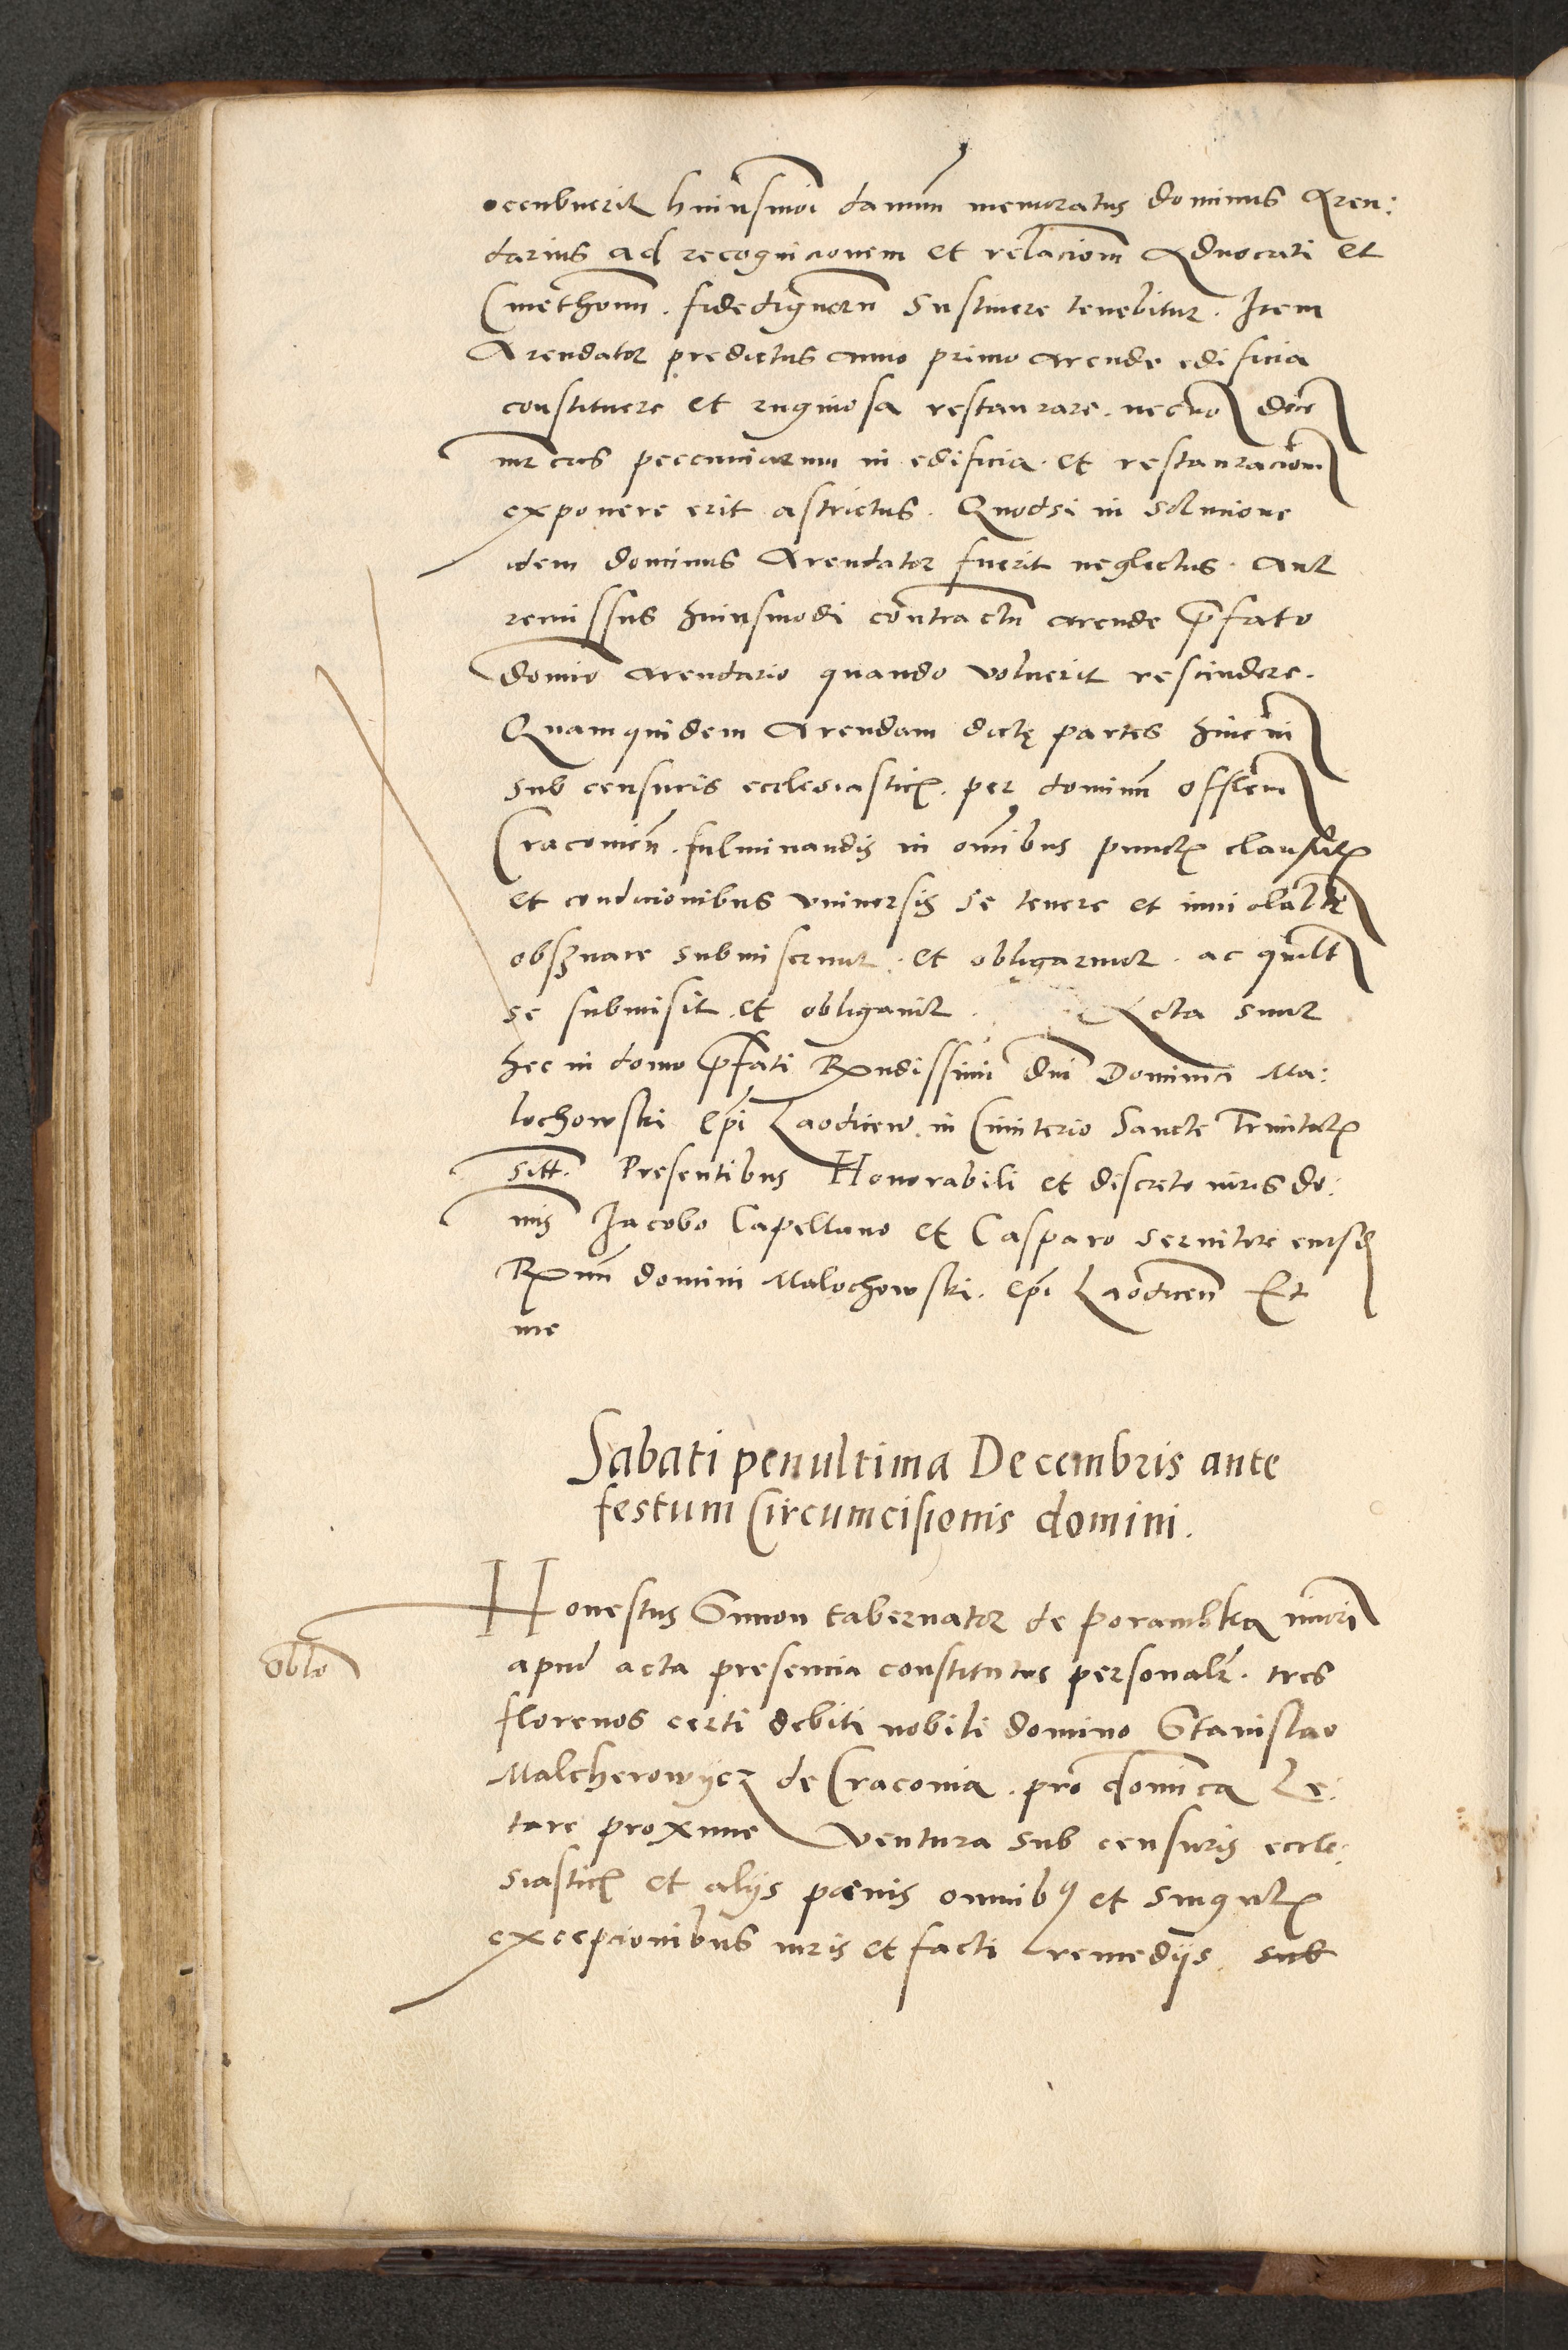 occubuerit huiusmoi damnu memoratus dominus Aren:
darius ad recognicionem et relaciom Aduocati et
Cmethonu. fidedignoru sustinere tenebitur. Item
Arendator predictus anno primo arende edificia
constituere et ruginosa restaurare. necno dece
mrcas peccuniarum in edificia. et restauraciom
exponere erit astrictus. Quodsi in solucione
idem dominus Arendator fuerit neglectus. Aut
remissus huiusmodi contractu arende pfato
domio arendario quando voluerit rescindere.
Quamquidem Arendam dictę partes hincin
sub censuris ecclesiasticz. per dominu offlem
Cracouien. fulminandis in omibus punctz clausulz
et condicionibus vniuersis se tenere et inuiolabltr
obseruare submiserunt. et obligarunt. ac quilt
se submisit. et obligauit. Acta sunt
hec in domo pfati Rndissimi dni Dominici Ma:
lochowski epi Laodicen. in Cimiterio Sancte Trinitatz
sitt. Presentibus Honorabili et discreto viris do:
nis Iacobo Capellano et Casparo seruitore eiusd
Rmi domini Malochowski. epi Laodicen Et
me
Sabati penultima Decembris ante
festum Circumcisionis domini.
Honestus Simon tabernator de Porambka minori
oblo
apud acta presencia constitutus personalr. tres
florenos certi debiti nobili domino Stanislao
Malcherowycz de Cracouia. pro domica Le:
tare proxime ventura sub censuris eccle:
siasticz et alijs pœnis omnib9 et singulz
excepcionibus iuris et facti remedijs. sub